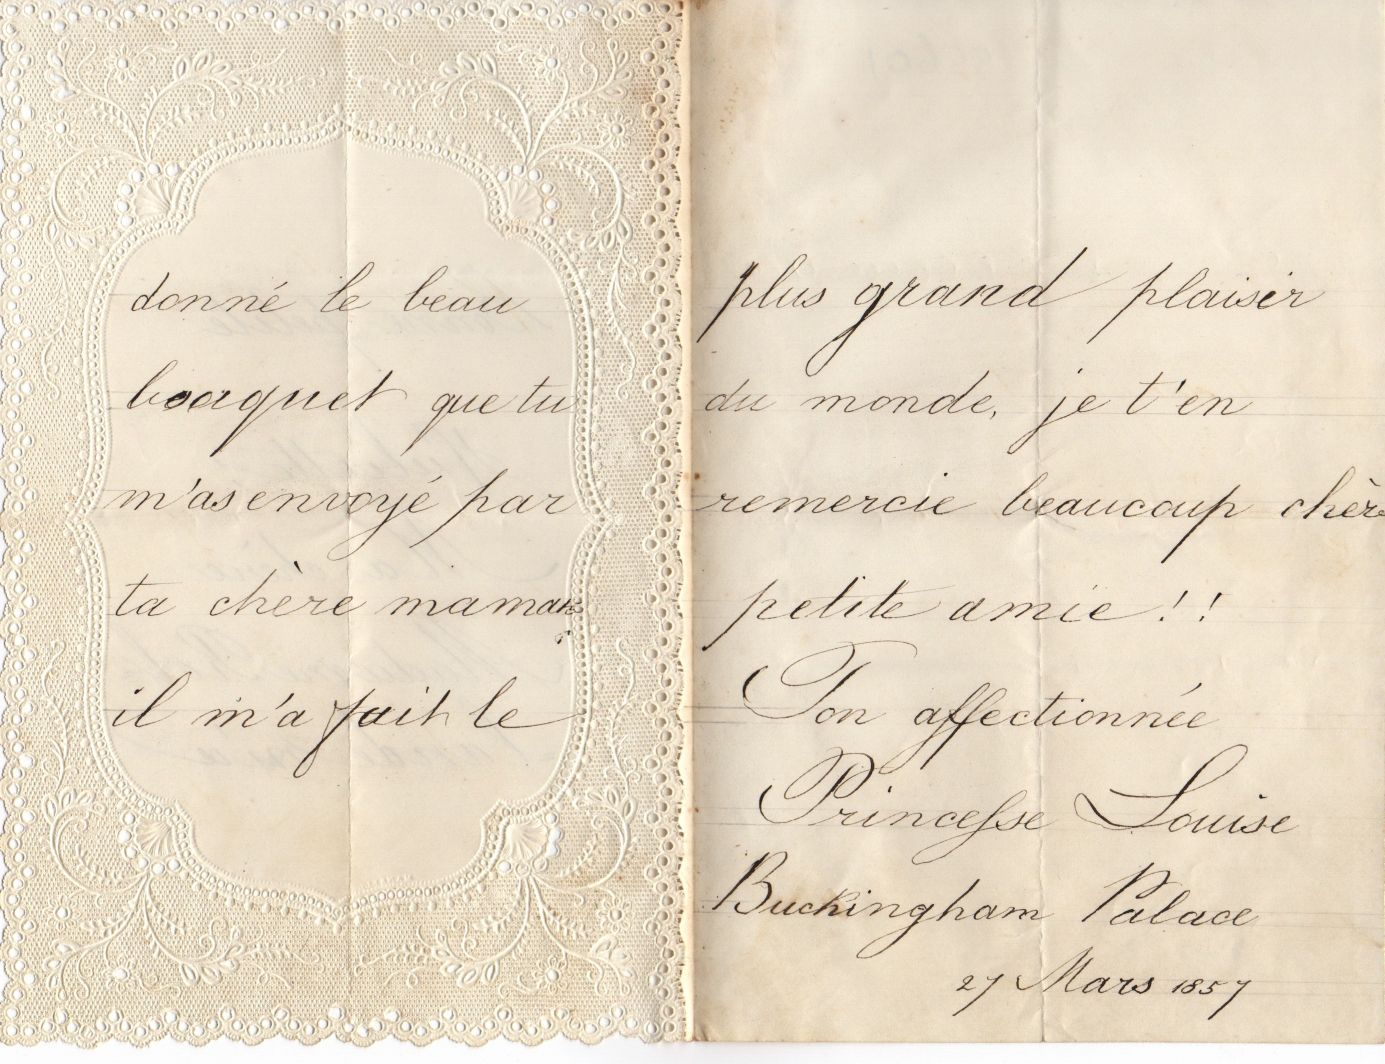 donné le beau
boaquet que tu
m'as envoyé par
ta chère maman
il m'a fait le
plus grand plaisir
du monde, je t'en
remercie beaucoup chère
petite amie !!
Ton affectionnée
Princesse Louise
Buckingham Palace
27 Mars 1857